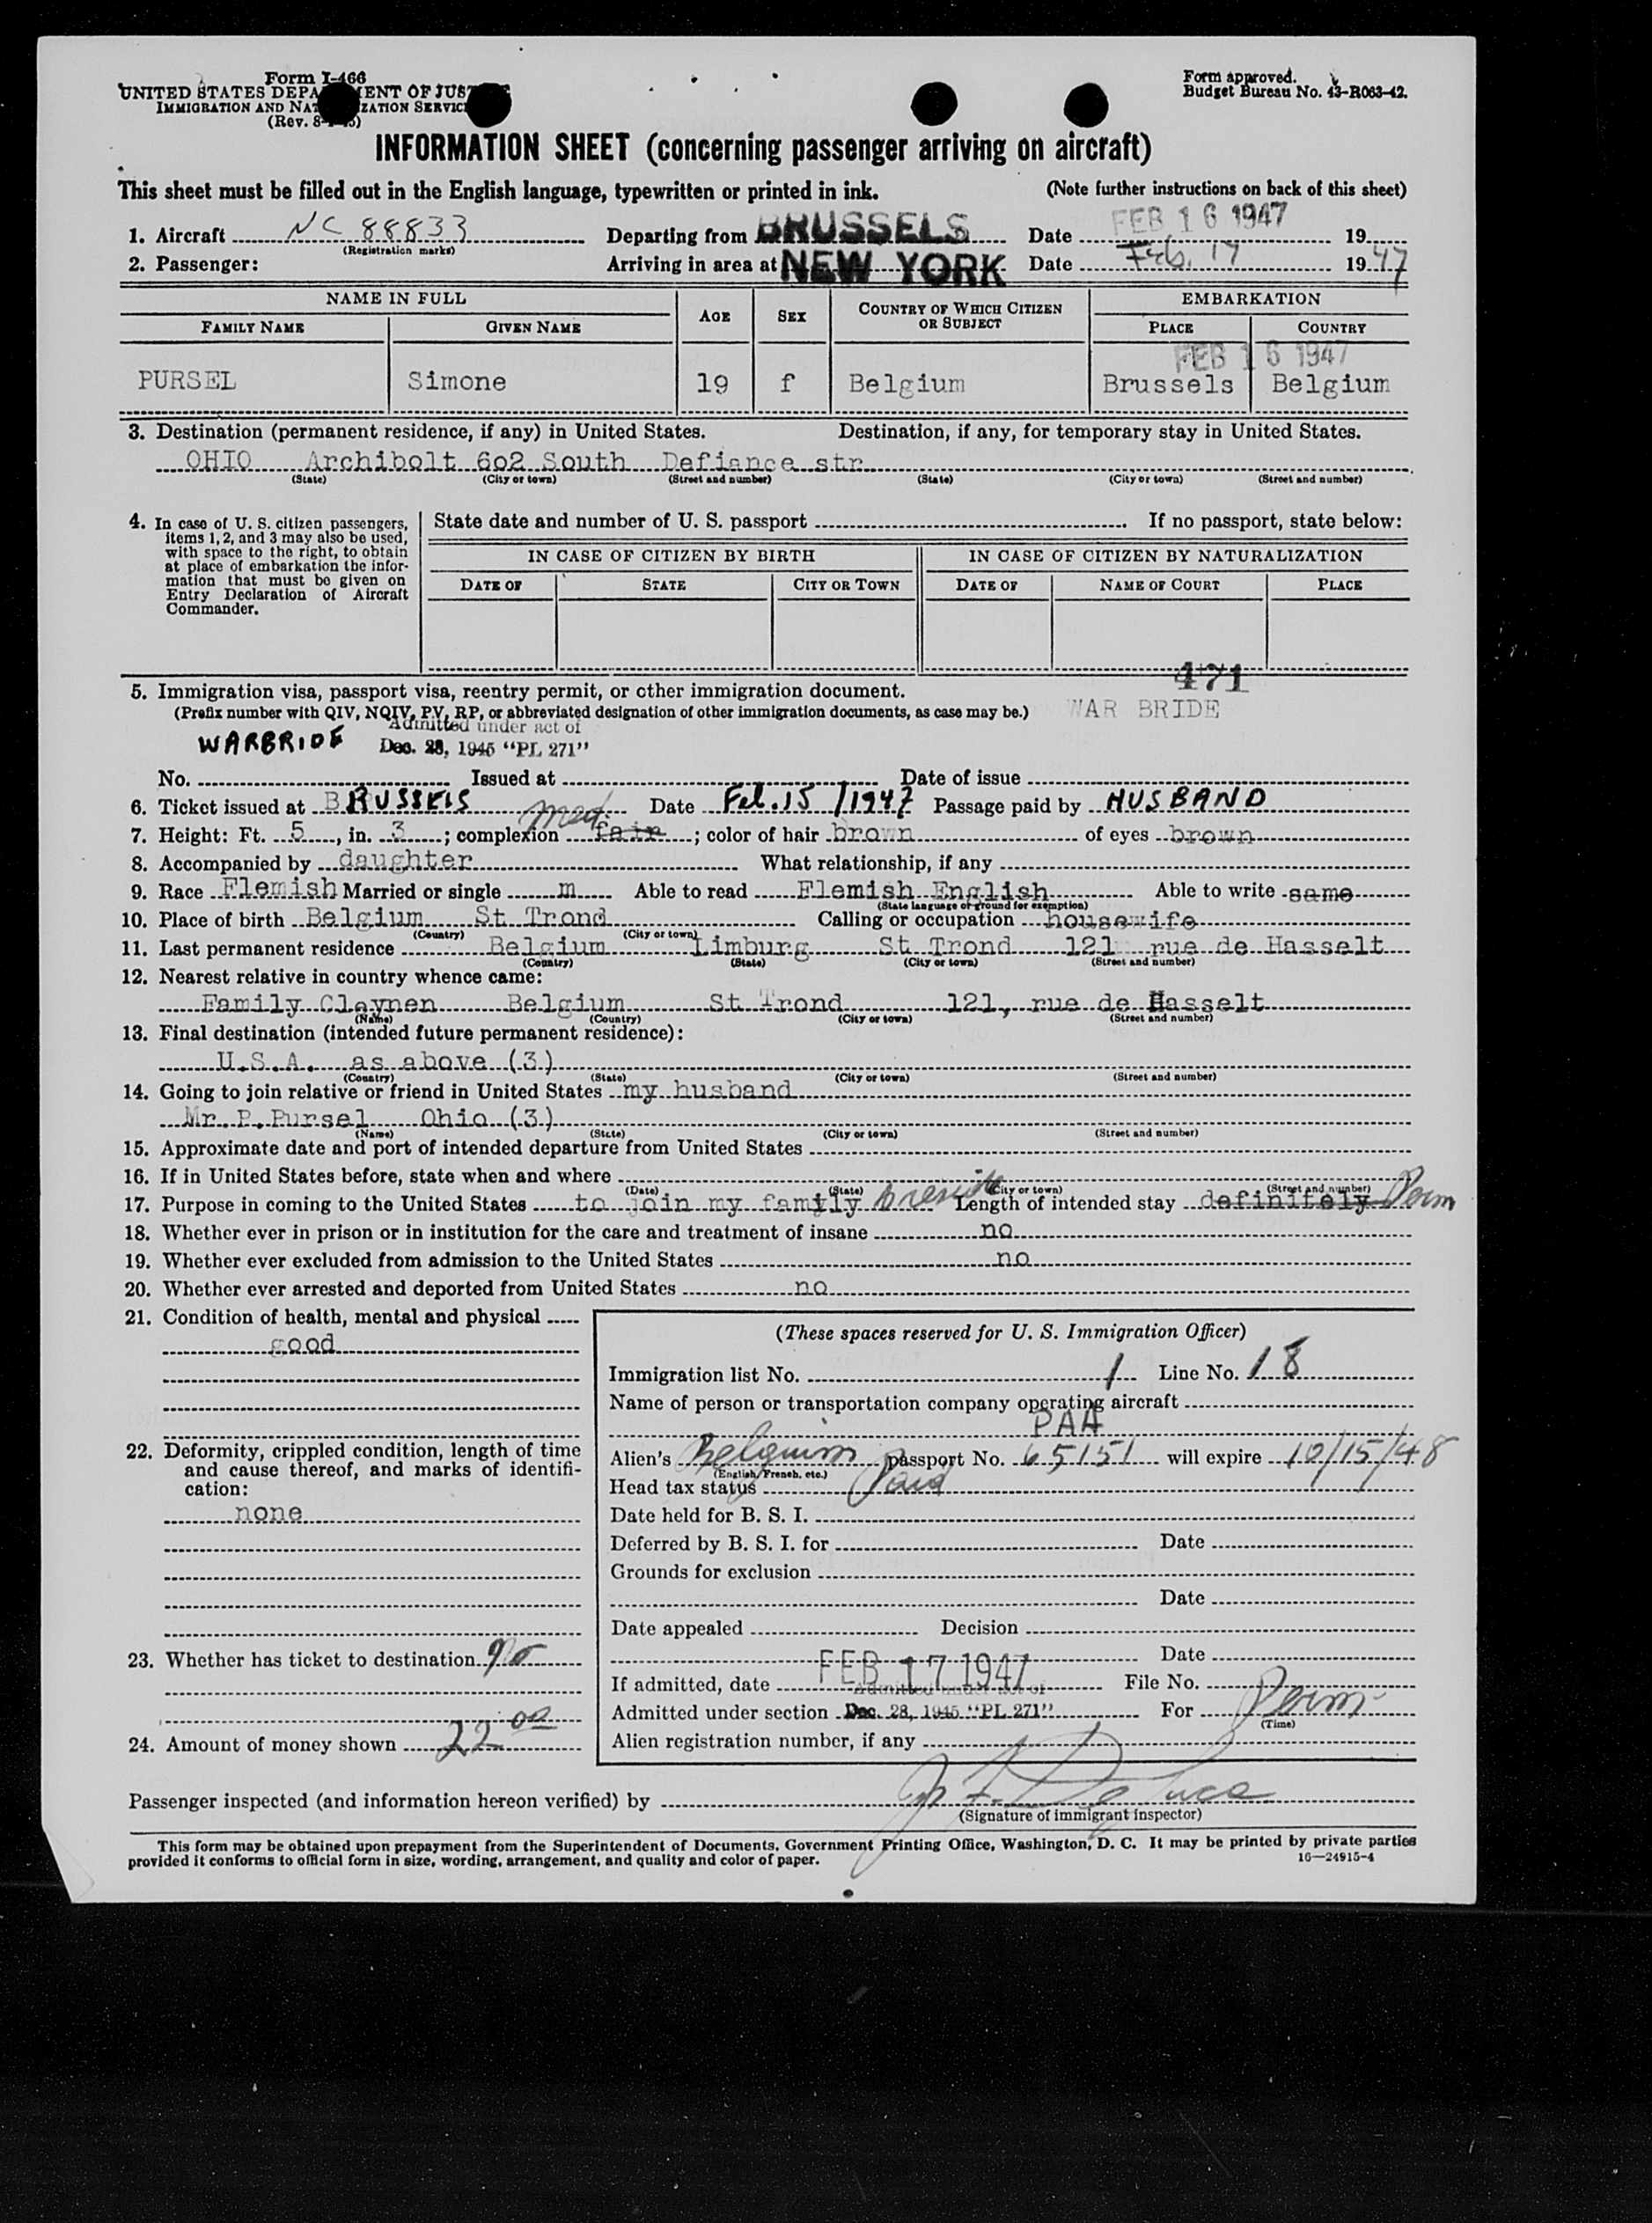 Form I-466
UNITED STATES DEPA MENT OF JUST
IMMIGRATION AND NAT ZATION SERVIC
(Rev. 8- )
Form approved.
Budget Bureau No. 43-R063-42.
INFORMATION SHEET (concerning passenger arriving on aircraft)
This sheet must be filled out in the English language, typewritten or printed in ink. (Note further instructions on back of this sheet)
1. Aircraft NC 88833 Departing from BRUSSELS Date FEB 16 1947 19
(Registration marks)
2. Passenger: Arriving in area at NEW YORK Date Feb. 17 1947
NAME IN FULL AGE SEX COUNTRY OF WHICH CITIZEN OR SUBJECT EMBARKATION
FAMILY NAME GIVEN NAME PLACE COUNTRY
FEB 16 1947
PURSEL Simone 19 f Belgium Brussels Belgium
3. Destination (permanent residence, if any) in United States. Destination, if any, for temporary stay in United States.
OHIO Archibolt 602 South Defiance str
(State) (City or town) (Street and number) (State) (City or town) (Street and number)
4. In case of U. S. citizen passengers, items 1, 2, and 3 may also be used, with space to the right, to obtain at place of embarkation the information that must be given on Entry Declaration of Aircraft Commander.
State date and number of U. S. passport If no passport, state below:
IN CASE OF CITIZEN BY BIRTH IN CASE OF CITIZEN BY NATURALIZATION
DATE OF STATE CITY OR TOWN DATE OF NAME OF COURT PLACE
471
5. Immigration visa, passport visa, reentry permit, or other immigration document.
(Prefix number with QIV, NQIV, PV, RP, or abbreviated designation of other immigration documents, as case may be.) WAR BRIDE
WARBRIDE Admitted under act of
Dec. 28, 1945 "PL 271"
No. Issued at Date of issue
6. Ticket issued at BRUSSELS Date Feb. 15 /1947 Passage paid by HUSBAND
7. Height: Ft. 5, in. 3; complexion fair med. ; color of hair brown of eyes brown
8. Accompanied by daughter What relationship, if any
9. Race Flemish Married or single m Able to read Flemish English Able to write same
(State language or ground for exemption)
10. Place of birth Belgium St Trond Calling or occupation housewife
(Country) (City or town)
11. Last permanent residence Belgium Limburg St Trond 121 rue de Hasselt
(Country) (State) (City or town) (Street and number)
12. Nearest relative in country whence came:
Family Claynen Belgium St Trond 121, rue de Hasselt
(Name) (Country) (City or town) (Street and number)
13. Final destination (intended future permanent residence):
U.S.A. as above (3)
(Country) (State) (City or town) (Street and number)
14. Going to join relative or friend in United States my husband
Mr P. Pursel Ohio (3)
(Name) (State) (City or town) (Street and number)
15. Approximate date and port of intended departure from United States
16. If in United States before, state when and where
(Date) (State) (City or town) (Street and number)
17. Purpose in coming to the United States to join my family Length of intended stay definitely Perm
18. Whether ever in prison or in institution for the care and treatment of insane no
19. Whether ever excluded from admission to the United States no
20. Whether ever arrested and deported from United States no
21. Condition of health, mental and physical
good
22. Deformity, crippled condition, length of time and cause thereof, and marks of identification:
none
23. Whether has ticket to destination no
24. Amount of money shown 22 00
(These spaces reserved for U. S. Immigration Officer)
Immigration list No. 1 Line No. 18
Name of person or transportation company operating aircraft
PAA
Alien's Belgium passport No. 65151 will expire 10/15/48
(English, French, etc.)
Head tax status Paid
Date held for B. S. I.
Deferred by B. S. I. for Date
Grounds for exclusion
Date
Date appealed Decision
Date
If admitted, date FEB 17 1947 File No.
Admitted under act of
Admitted under section Dec. 28, 1945 "PL 271" For Perm
(Time)
Alien registration number, if any
Passenger inspected (and information hereon verified) by
(Signature of immigrant inspector)
This form may be obtained upon prepayment from the Superintendent of Documents, Government Printing Office, Washington, D. C. It may be printed by private parties
provided it conforms to official form in size, wording, arrangement, and quality and color of paper. 16—24915-4